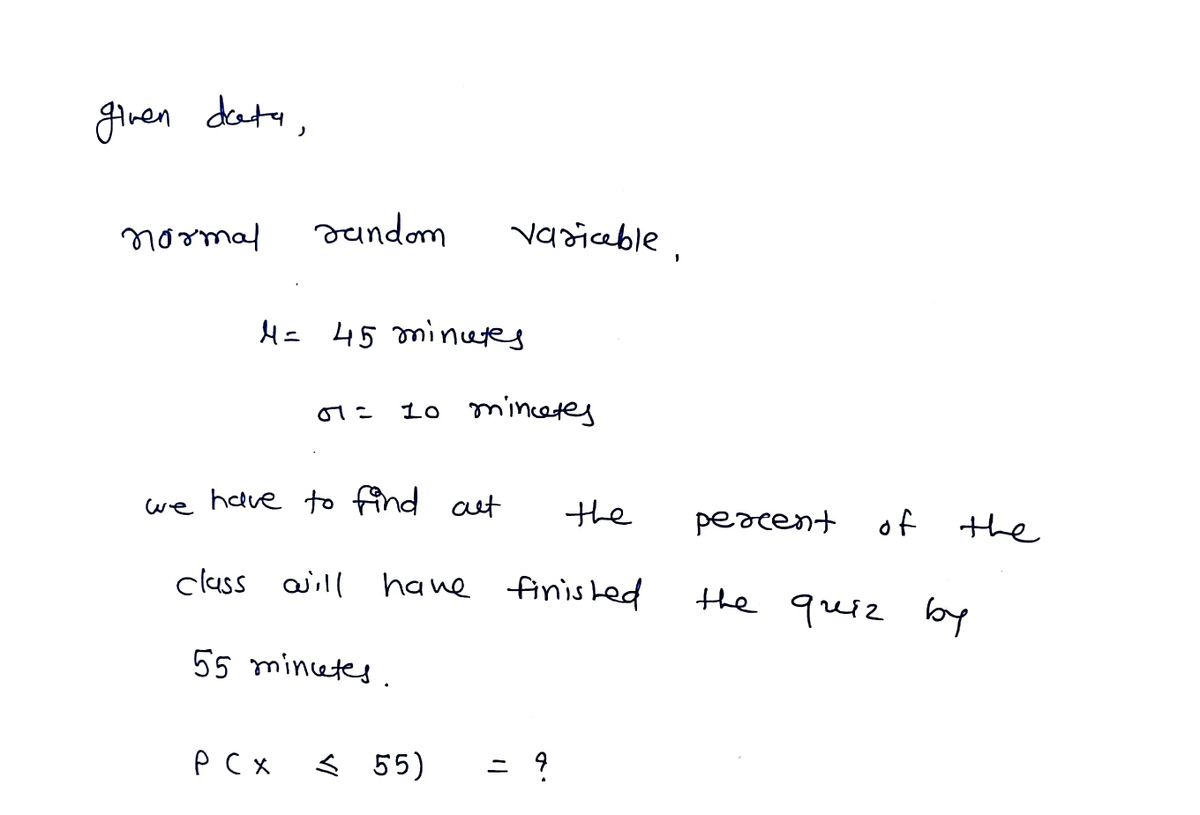 given data,
normal random variable,
μ = 45 minutes
σ = 10 minutes
we have to find out the percent of the
class will have finished the quiz by
55 minutes.
P(x ≤ 55) = ?